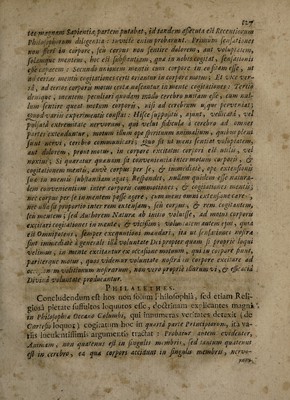 127
ter magnam Sapientiæ partem putabat, id tandem assecuta est Recentiorum
Philosophorum diligentia: invicte enim probarunt. Primùm sensationes
non fieri in corpore, seu corpus non sentire dolorem, aut voluptatem,
solamque mentem, hoc est substantiam, quæ in nobis cogitat, sensationis
esse capacem: Secundò mentem nostram cum corpore ita conjunctam esse, ut
ad certas mentis cogitationes certi cieantur in corpore motus; Et vice ver-
sâ, ad certos corporis motus certæ nascantur in mente cogitationes: Tertiò
denique, mentem peculiari quodam modo cerebro unitam esse, cum nul-
lum sentire queat motum corporis, nisi ad cerebrum usque perveniat;
quod variis experimentis constat: Hisce suppositis, ajunt, vellicatâ, vel
pulsatâ extremitate nervorum, qui velut funiculi à cerebro ad omnes
partes extenduntur, motum illum ope spirituum animalium, quibus pleni
sunt nervi, cerebro communicari; Quo fit ut mens sentiat voluptatem,
aut dolorem, prout motus, in corpore excitatus corpori est utilis, vel
noxius; Si quæratur quænam sit convenientia inter motum corporis, &
cogitationem mentis, cum corpus per se, & immediatè, ope extensionis
suæ in mentis substantiam agat; Respondent, nullam quidem esse natura-
lem convenientiam inter corporis commotiones, & cogitationes mentis;
nec corpus per se in mentem posse agere, cum mens omni extensione careat,
nec ulla sit proportio inter rem extensam, seu corpus, & rem cogitantem,
seu mentem; sed Authorem Naturæ ab initio voluisse, ad motus corporis
excitari cogitationes in mente, & vicissim; Voluntatem autem ipsius, quia
est Omnipotens, semper exequutioni mandari, ita ut sensationes nostræ
sint immediatè à generali illâ voluntate Dei propter quam si propriè loqui
velimus, in mente excitantur ex occasione motuum, qui in corpore fiunt,
pariterque motus, quos vidimus voluntate nostrâ in corpore excitare ad
oc... in voluntatum nostrarum, non verò propriè illarum vi, & efficaciâ
Divinâ voluntate producantur.
PHILALETHES.
Concludendum est hos non solùm Philosophiâ, sed etiam Reli-
giosâ pietate suffultos loquutos esse, doctrinam explicantes magnâ
in Philosophiæ Oceano Columbi, qui innumeras veritates detexit (de
Cartesio loquor) cogitatum hoc in quartâ parte Principiorum, ita va-
riis luculentissimis argumentis tractat: Probatur autem evidenter,
Animam, non quatenus est in singulis membris, sed tantùm quatenus
est in cerebro, ea quæ corpori accidunt in singulis membris, nervo-
rum